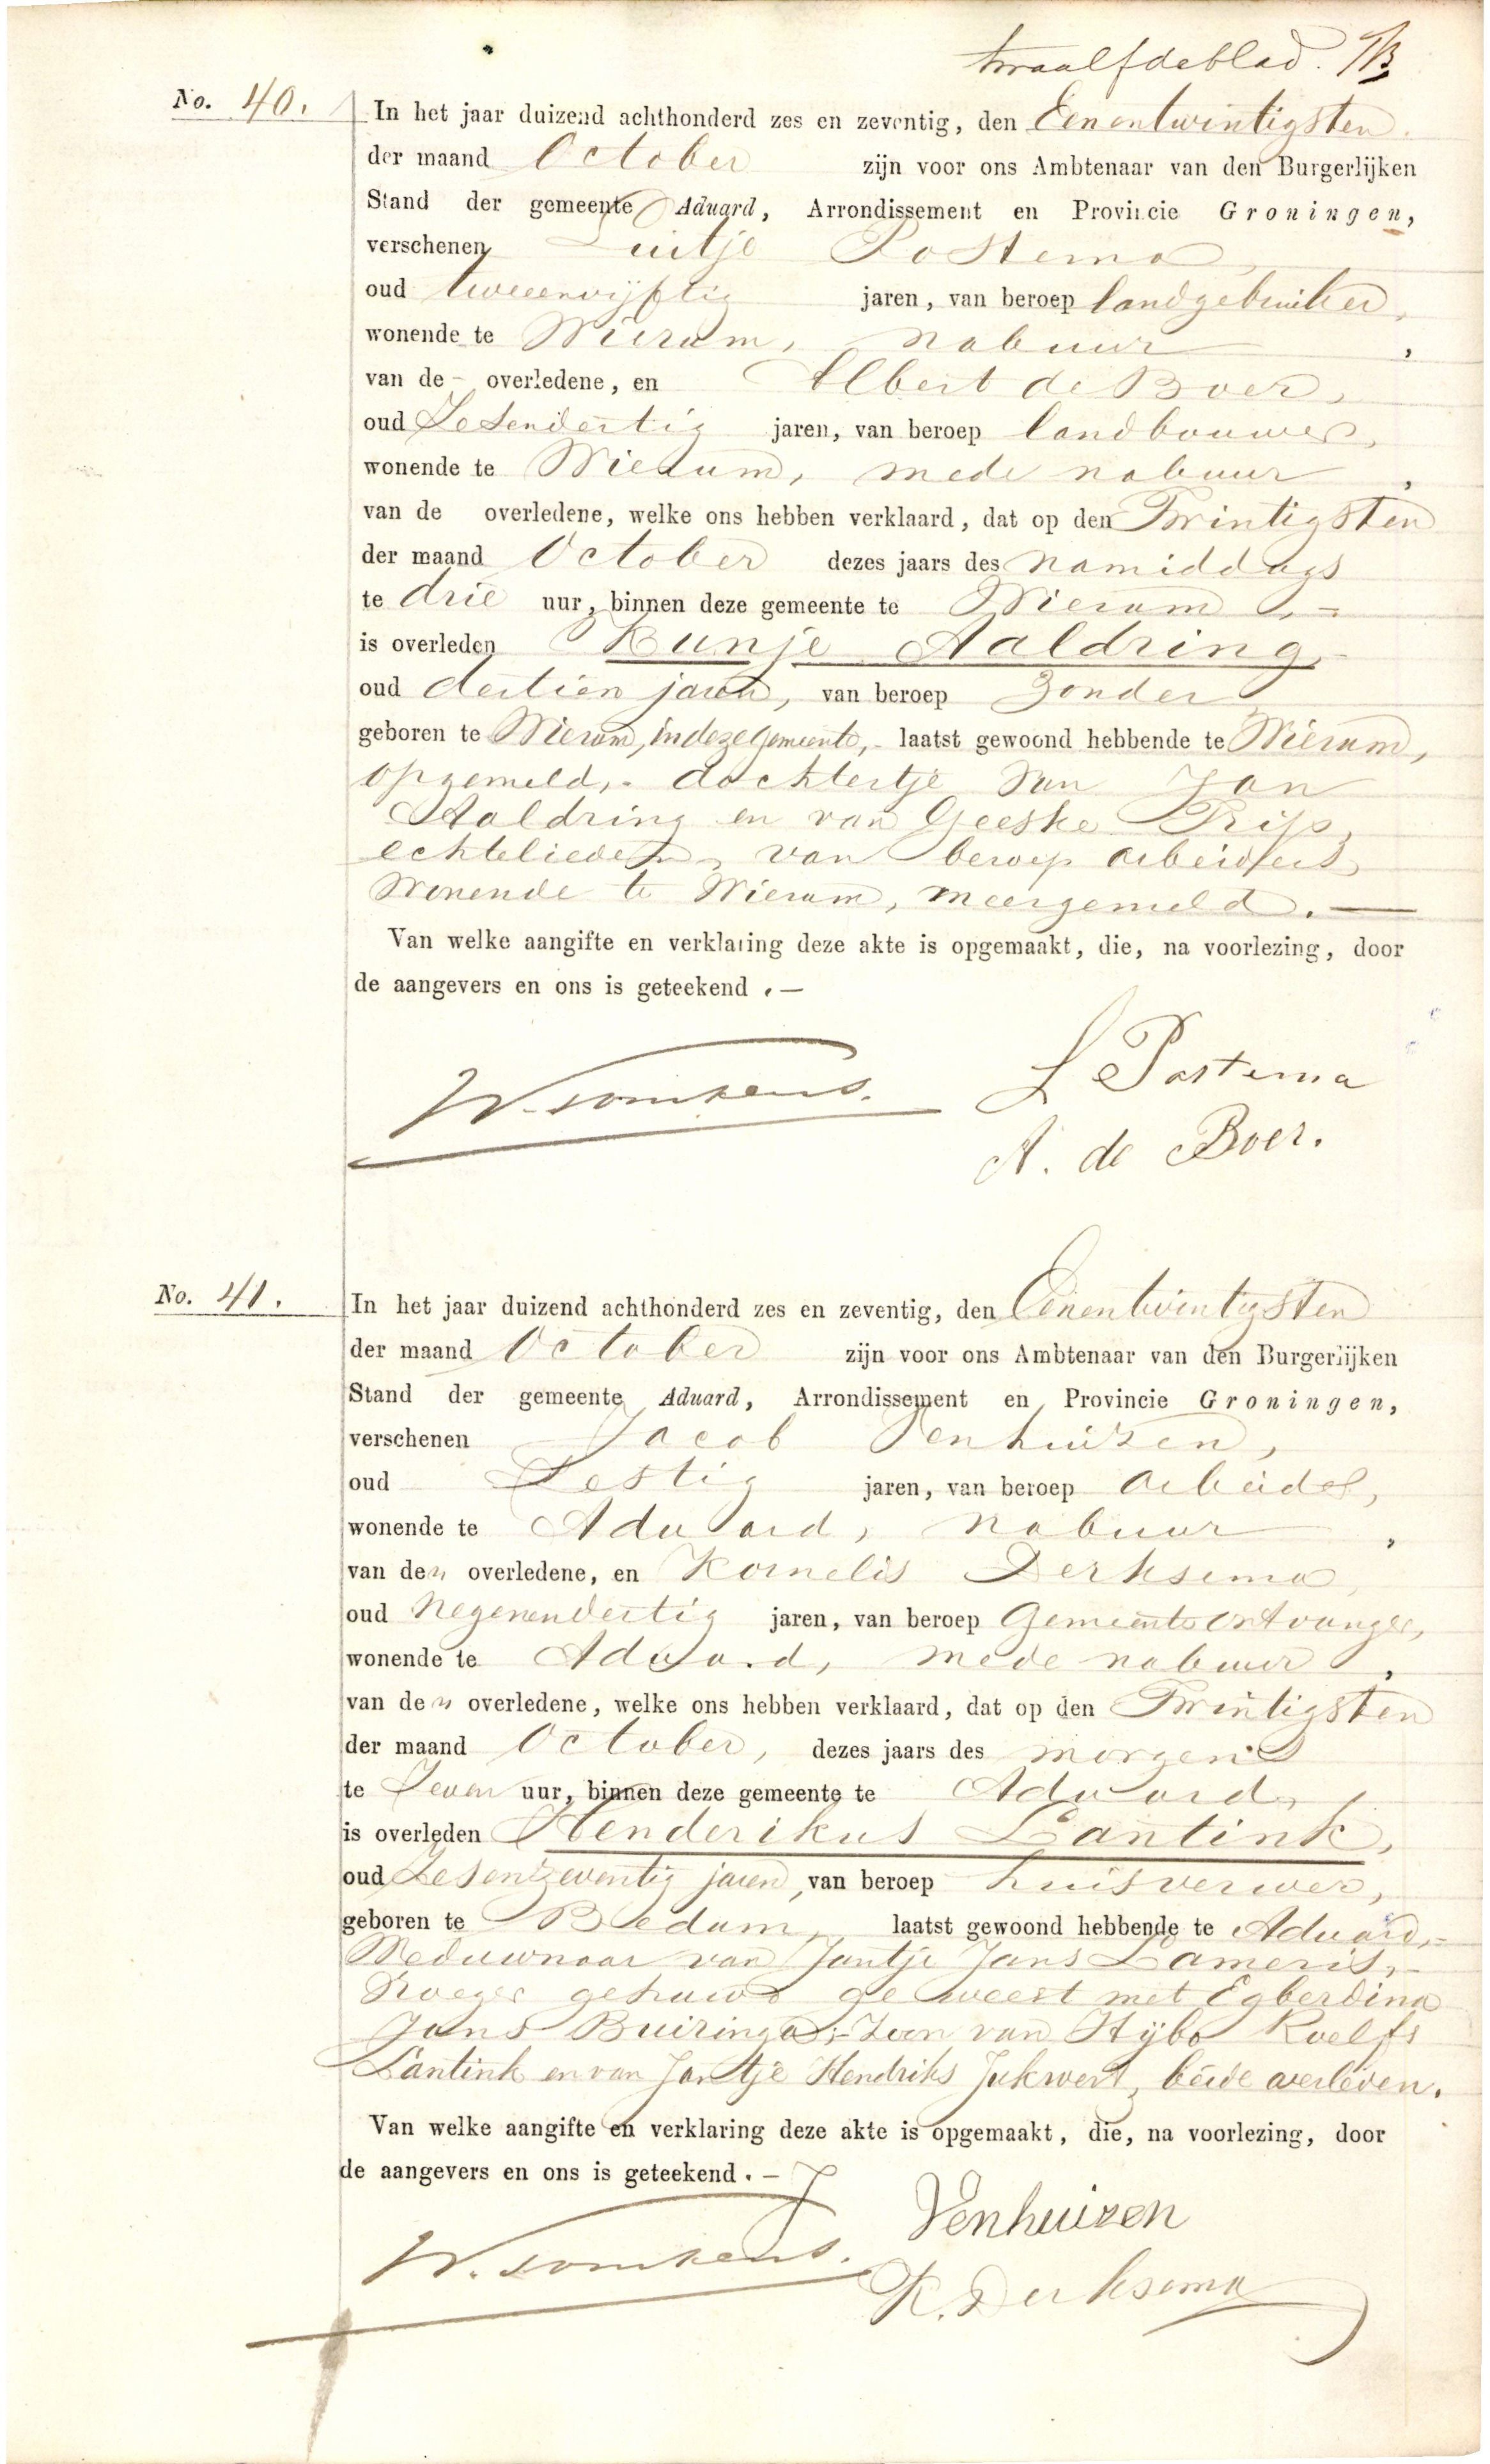 twaalfde blad.
No. 40. In het jaar duizend achthonderd zes en zeventig, den Eenentwintigsten
der maand October zijn voor ons Ambtenaar van den Burgerlijken
Stand der gemeente Aduard, Arrondissement en Provincie Groningen,
verschenen Luitje Postema,
oud tweeenvijftig jaren, van beroep landgebruiker,
wonende te Wierum, nabuur,
van de overledene, en Albert de Boer,
oud Zesendertig jaren, van beroep landbouwer,
wonende te Wierum, mede nabuur,
van de overledene, welke ons hebben verklaard, dat op den Twintigsten
der maand October dezes jaars des namiddags
te drie uur, binnen deze gemeente te Wierum,
is overleden Kunje Aaldring,
oud dertien jaren, van beroep zonder
geboren te Wierum, in deze gemeente, laatst gewoond hebbende te Wierum,
opgemeld, dochtertje van Jan
Aaldring en van Geeske Prijs,
echtelieden, van beroep arbeiders,
wonende te Wierum, meergemeld. —
Van welke aangifte en verklaring deze akte is opgemaakt, die, na voorlezing, door
de aangevers en ons is geteekend. —
L Postema
W. Tonkens.
A. de Boer.
No. 41. In het jaar duizend achthonderd zes en zeventig, den Eenentwintigsten
der maand October zijn voor ons Ambtenaar van den Burgerlijken
Stand der gemeente Aduard, Arrondissement en Provincie Groningen,
verschenen Jacob Venhuizen,
oud Zestig jaren, van beroep arbeider,
wonende te Aduard, nabuur,
van den overledene, en Kornelis Derksema,
oud Negenendertig jaren, van beroep Gemeente ontvanger,
wonende te Aduard, mede nabuur,
van den overledene, welke ons hebben verklaard, dat op den Twintigsten
der maand October, dezes jaars des morgens
te Zeven uur, binnen deze gemeente te Aduard,
is overleden Henderikus Lantink,
oud Zesenzeventig jaren, van beroep huisverwer,
geboren te Bedum, laatst gewoond hebbende te Aduard,
Weduwnaar van Jantje Jans Lameris,
vroeger gehuwd geweest met Egberdina
Jans Buiringa; Zoon van Sijbo Roelfs
Lantink en van Jantje Hendriks Jukwert, beide overleden.
Van welke aangifte en verklaring deze akte is opgemaakt, die, na voorlezing, door
de aangevers en ons is geteekend. —
J Venhuizen
W. Tonkens.
K. Derksema